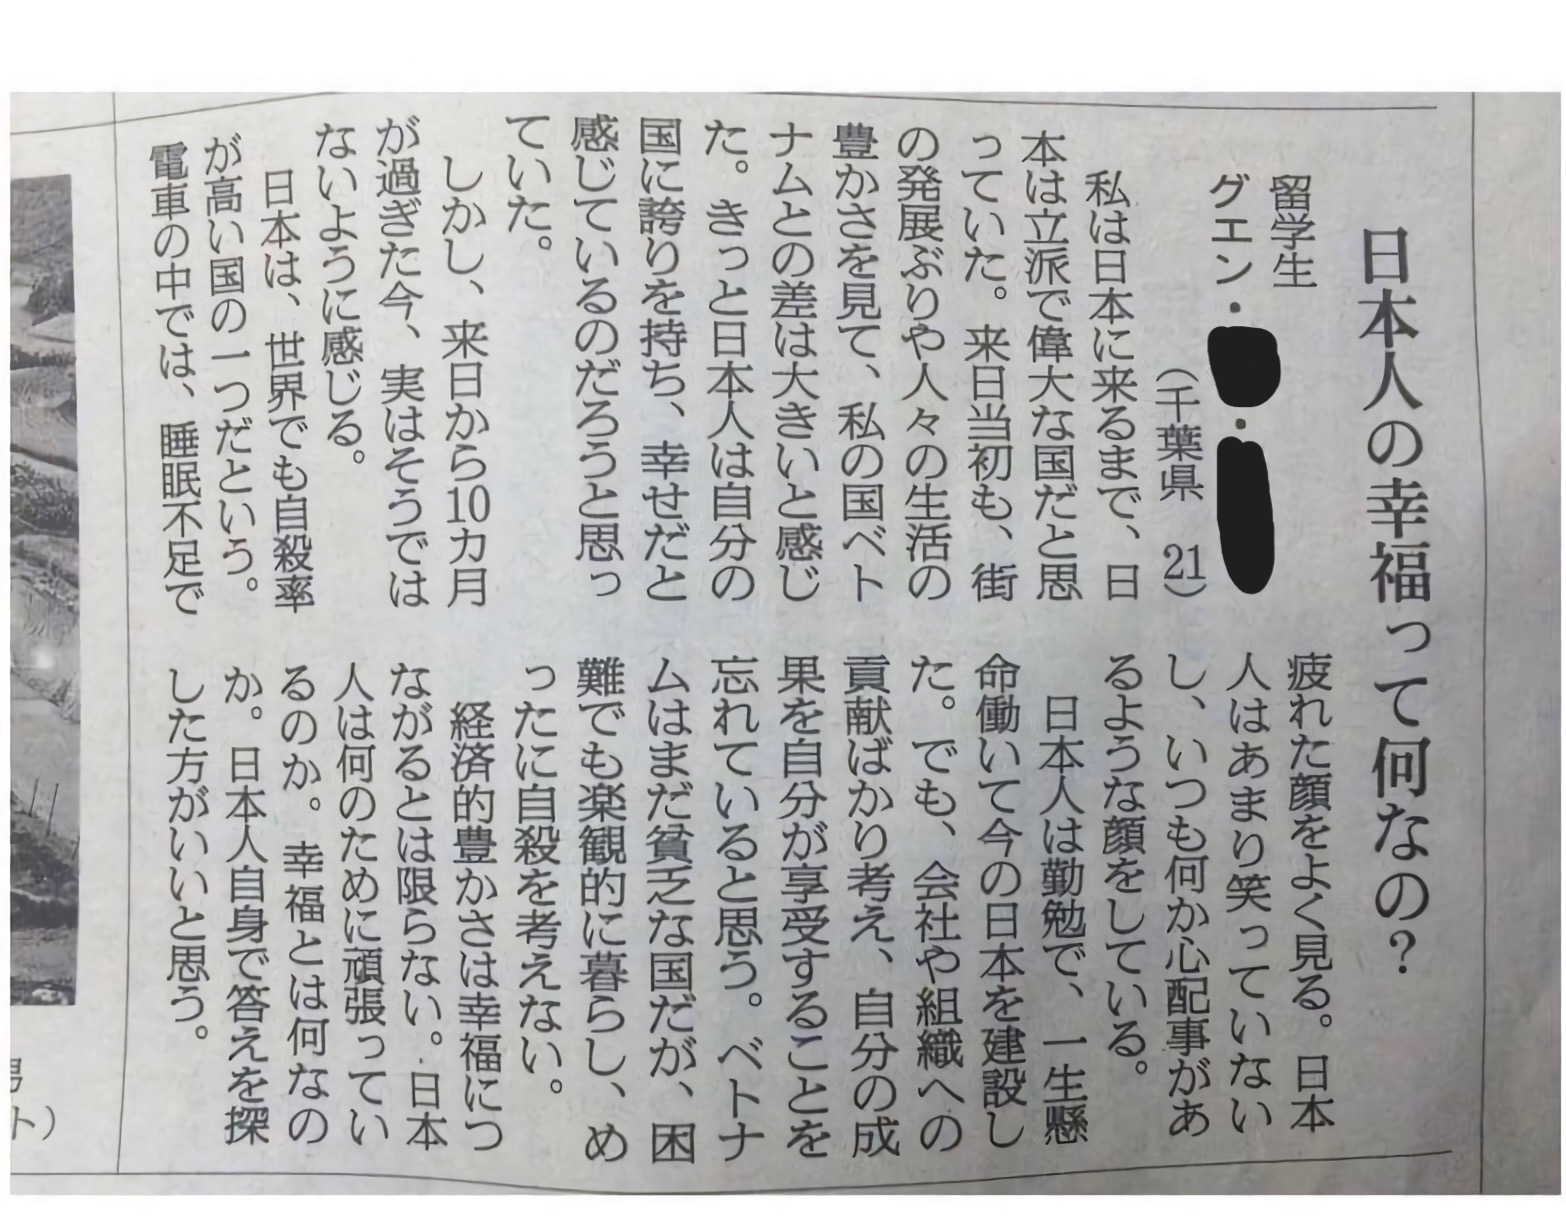 日本人の幸福って何なの？
留学生
グエン・
・
（千葉県　21）
私は日本に来るまで、日
本は立派で偉大な国だと思
っていた。来日当初も、街
の発展ぶりや人々の生活の
豊かさを見て、私の国ベト
ナムとの差は大きいと感じ
た。きっと日本人は自分の
国に誇りを持ち、幸せだと
感じているのだろうと思っ
ていた。
しかし、来日から10カ月
が過ぎた今、実はそうでは
ないように感じる。
日本は、世界でも自殺率
が高い国の一つだという。
電車の中では、睡眠不足で
疲れた顔をよく見る。日本
人はあまり笑っていない
し、いつも何か心配事があ
るような顔をしている。
日本人は勤勉で、一生懸
命働いて今の日本を建設し
た。でも、会社や組織への
貢献ばかり考え、自分の成
果を自分が享受することを
忘れていると思う。ベトナ
ムはまだ貧乏な国だが、困
難でも楽観的に暮らし、め
ったに自殺を考えない。
経済的豊かさは幸福につ
ながるとは限らない。日本
人は何のために頑張ってい
るのか。幸福とは何なの
か。日本人自身で答えを探
した方がいいと思う。
ト）